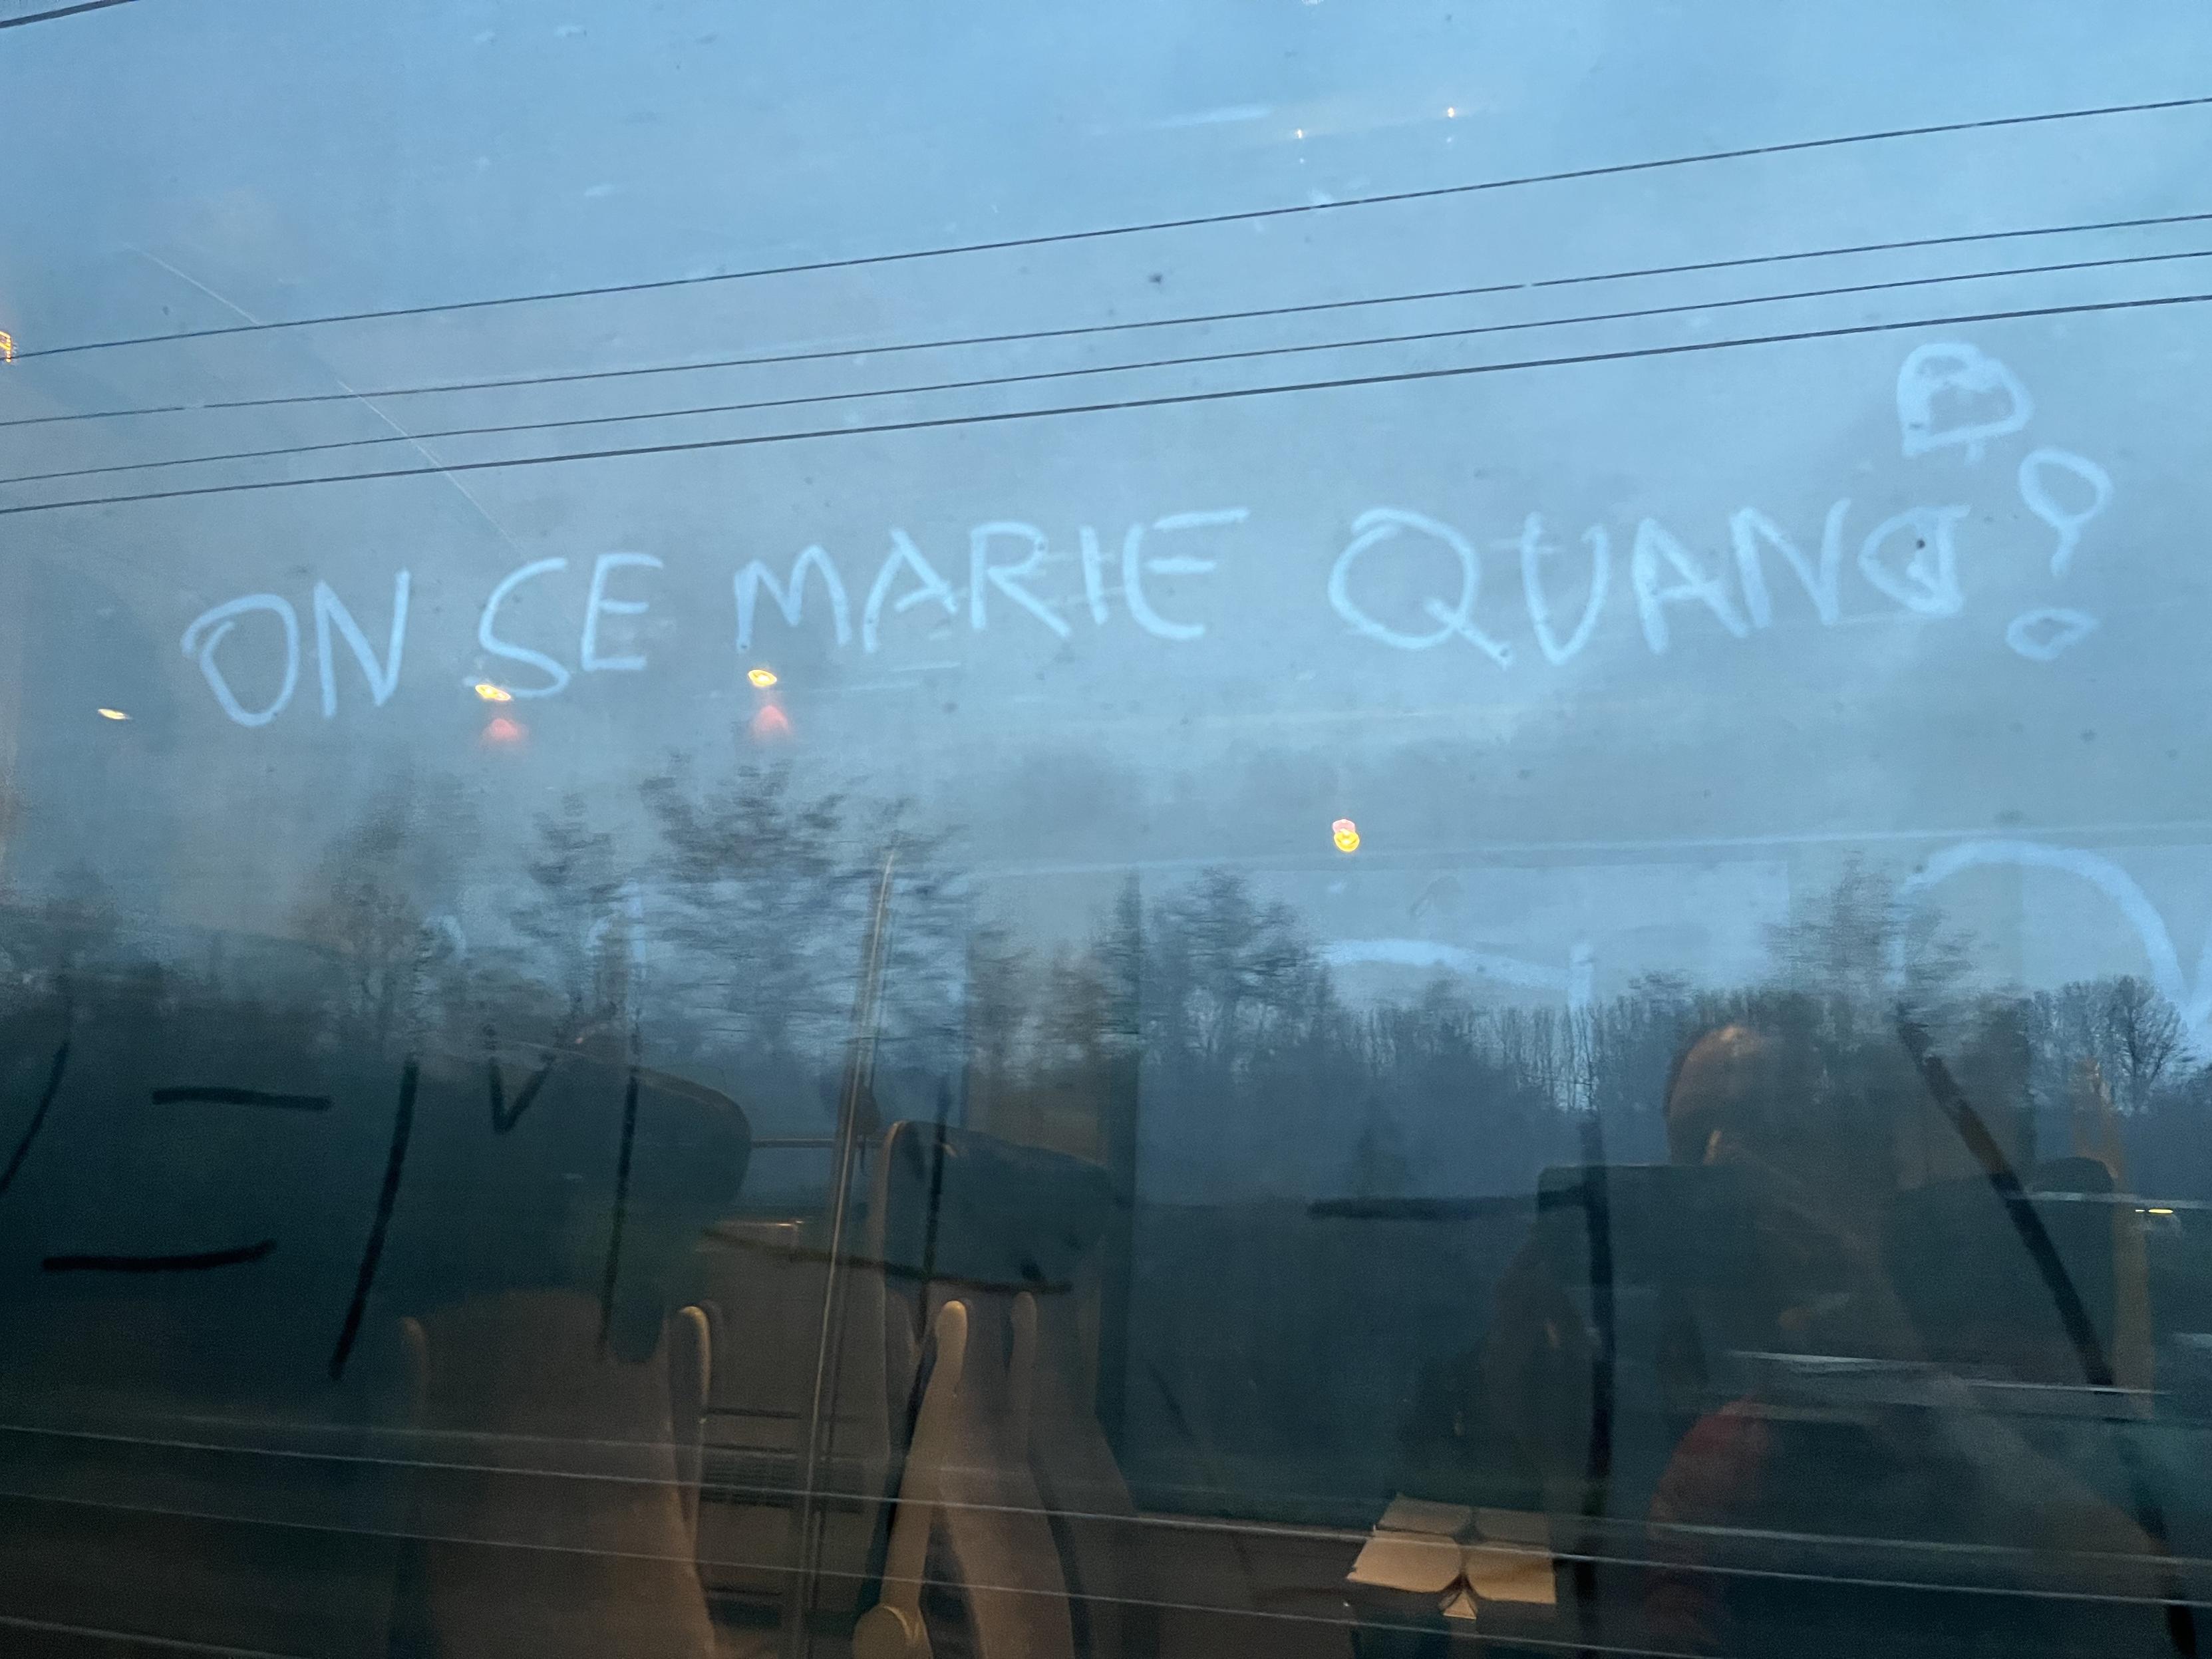 ON SE MARIE QUAND ?